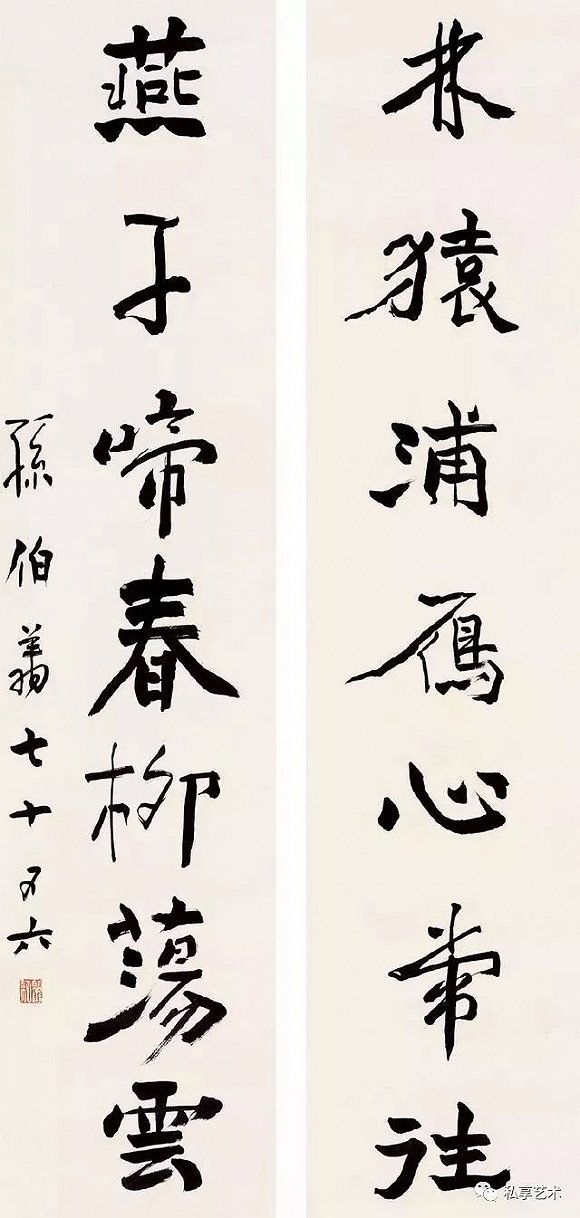 林猿浦鴈心常往
燕子啼春柳蕩雲
孫伯翔七十又六
私享艺术